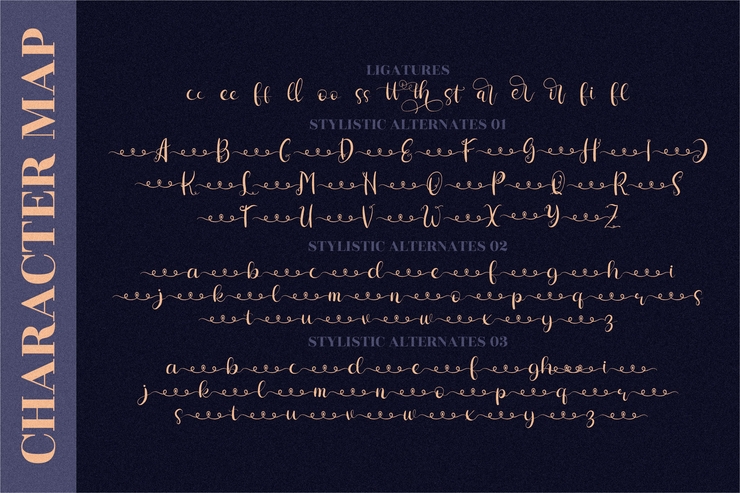 CHARACTER MAP
LIGATURES
cc ee ff ll oo ss tt th st ar er or fi fl
STYLISTIC ALTERNATES 01
A B C D E F G H I J
K L M N O P Q R S
T U V W X Y Z
STYLISTIC ALTERNATES 02
a b c d e f g h i
j k l m n o p q r s
t u v w x y z
STYLISTIC ALTERNATES 03
a b c d e f g h i
j k l m n o p q r
s t u v w x y z